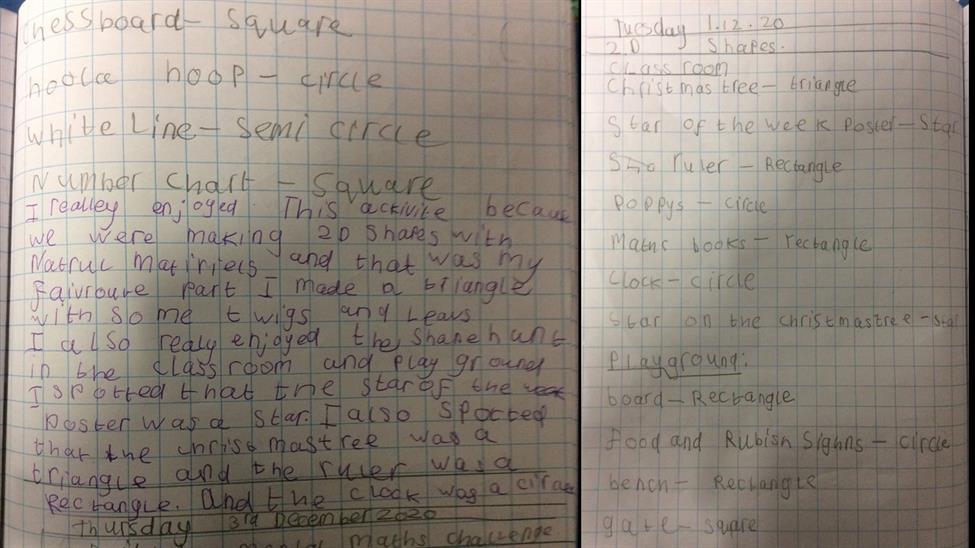 chessboard - Square
hoola hoop - circle
white Line - Semi circle
Number Chart - Square
I realley enjoyed This activite because
we were making 2D Shapes with
Natruc matiriels and that was my
faivroure part I made a triangle
with some twigs and Leavs
I also realy enjoyed the Shape hunt
in the classroom and play ground
I spotted that the star of the week
poster was a star. I also spotted
that the chrissmastree was a
triangle and the ruler was a
Rectangle. And the clock was a circle
Thursday 3rd December 2020
maths challenge
Tuesday 1.12.20
2D Shapes.
Classroom
Christmas tree - triangle
Star of the week Poster - Star
ruler - Rectangle
Poppys - circle
Maths books - rectangle
Clock - circle
Star on the christmastree - star
Playground:
board - Rectangle
food and Rubish Sighns - circle
bench - Rectangle
gate - square